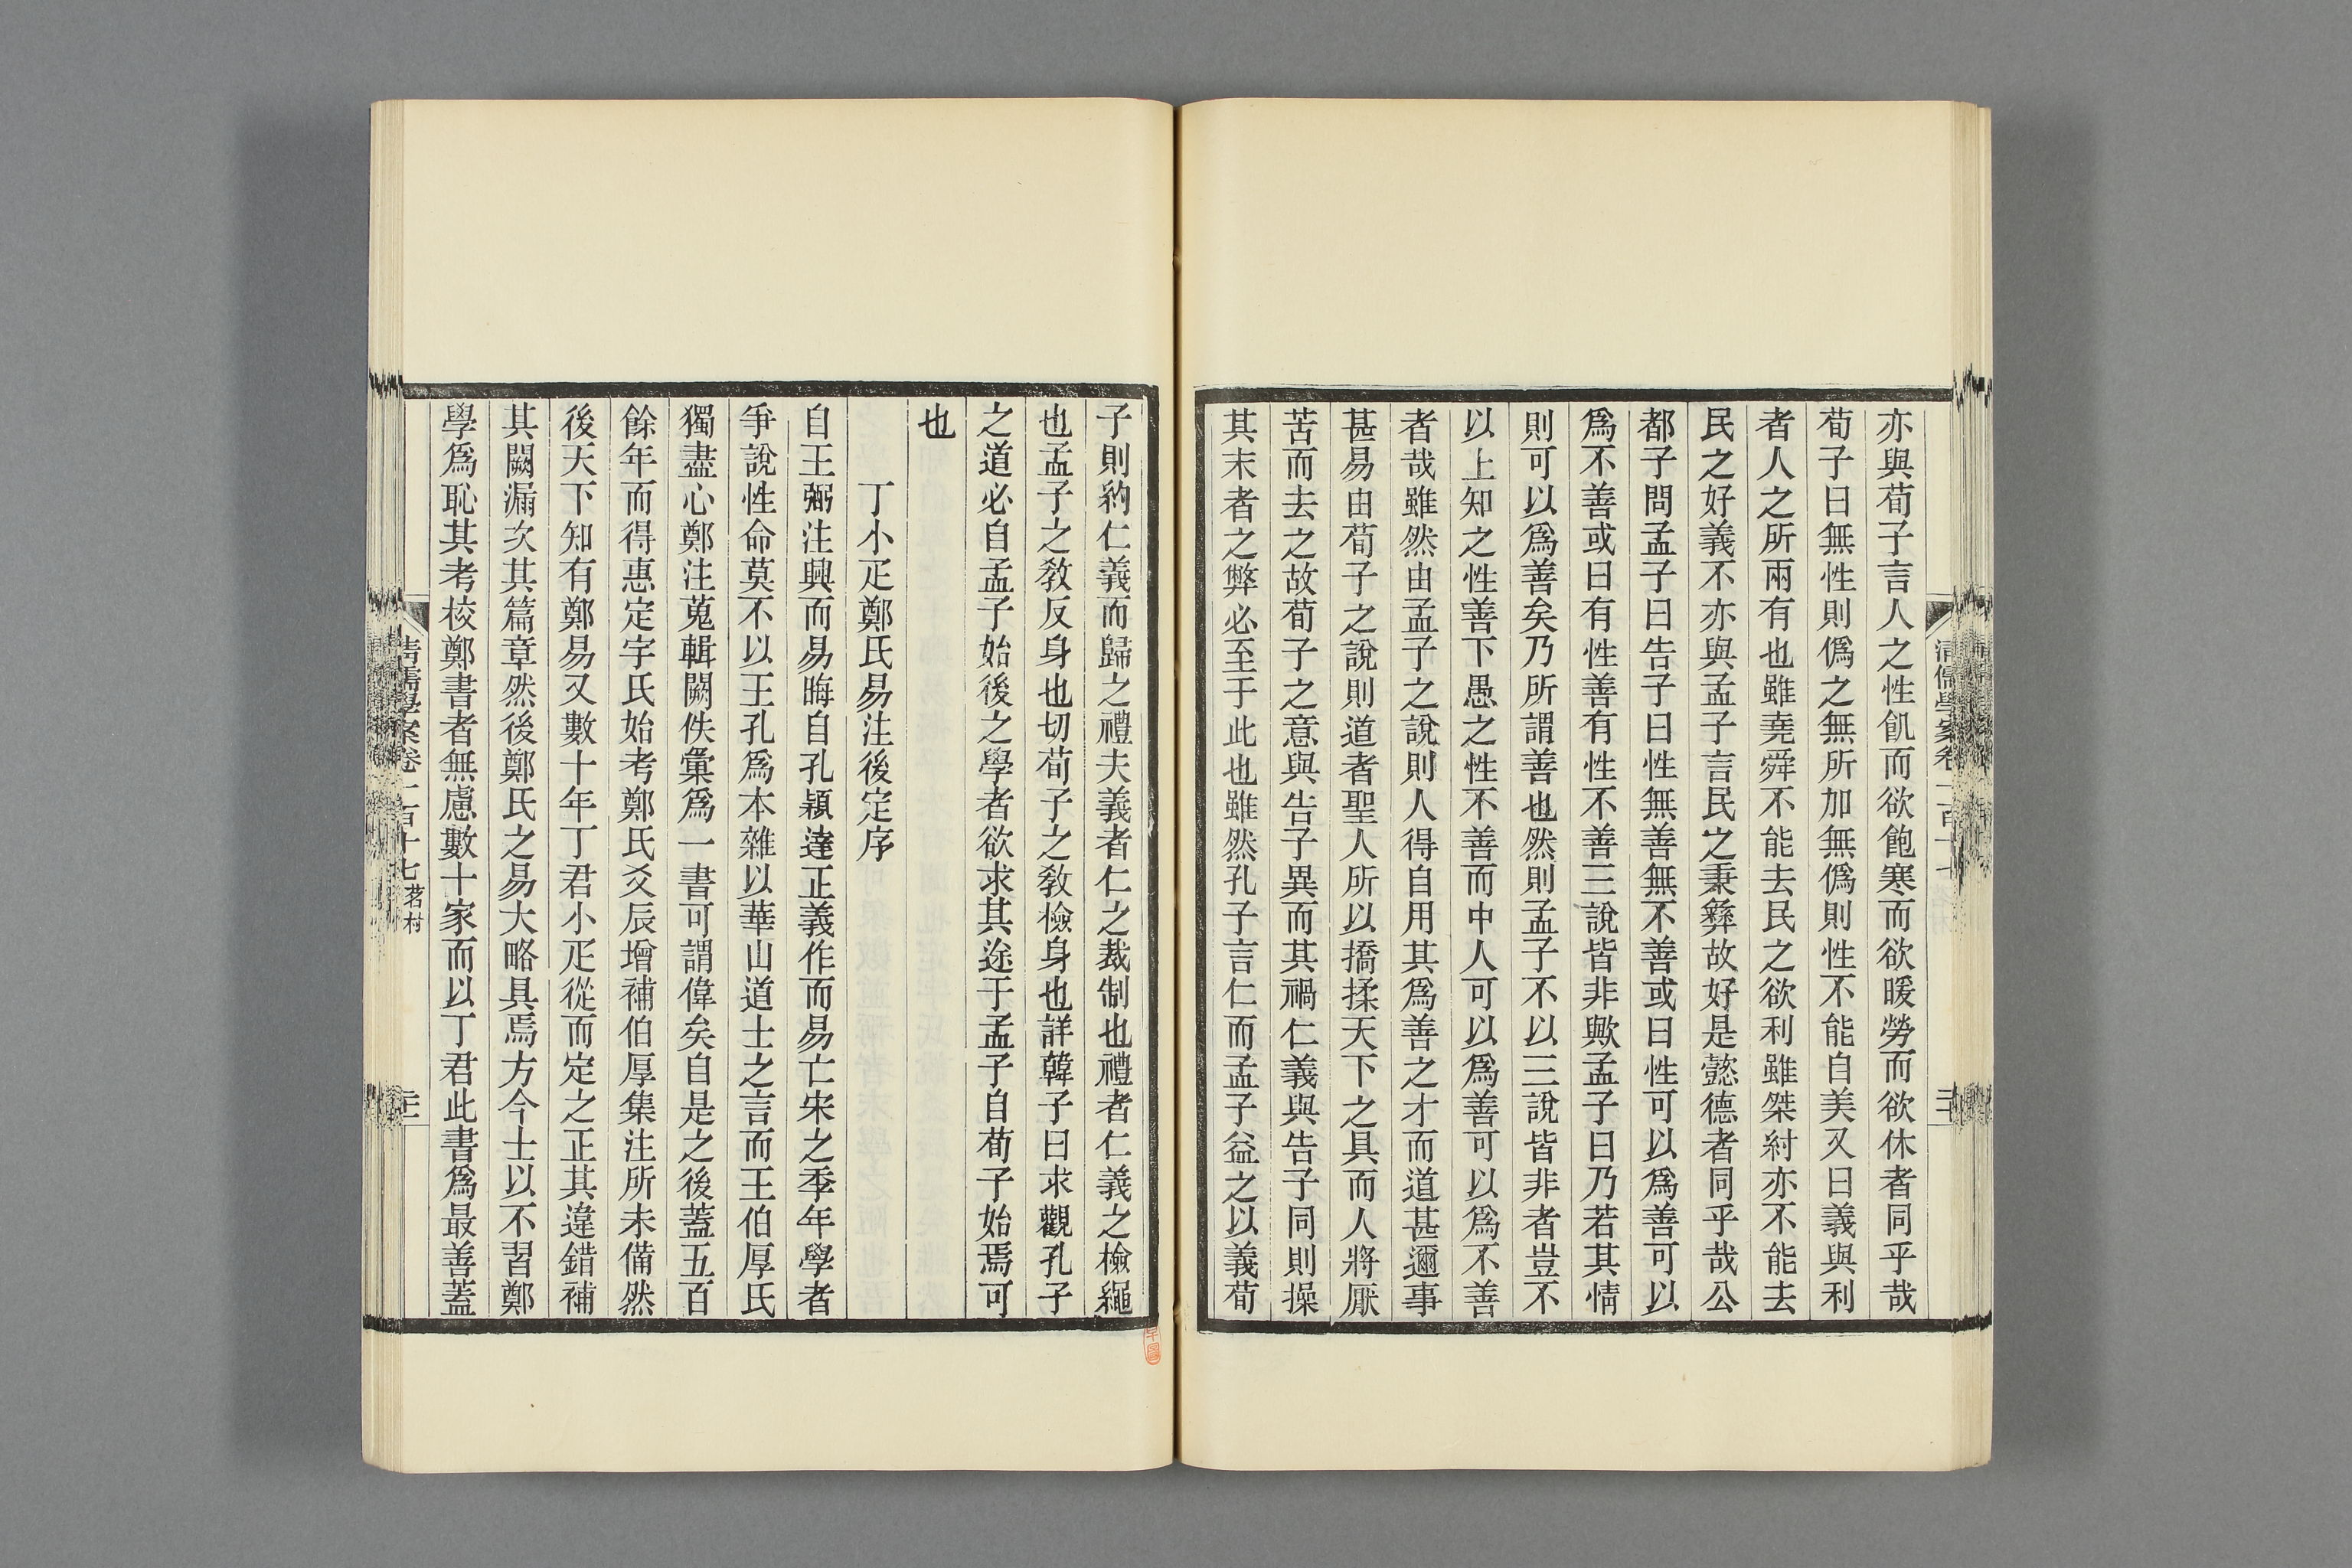 亦與荀子言人之性飢而欲飽寒而欲暖勞而欲休者同乎哉
荀子曰無性則僞之無所加無僞則性不能自美又曰義與利
者人之所兩有也雖堯舜不能去民之欲利雖桀紂亦不能去
民之好義不亦與孟子言民之秉彝故好是懿德者同乎哉公
都子問孟子曰告子曰性無善無不善或曰性可以爲善可以
爲不善或曰有性善有性不善三說皆非歟孟子曰乃若其情
則可以爲善矣乃所謂善也然則孟子不以三說皆非者豈不
以上知之性善下愚之性不善而中人可以爲善可以爲不善
者哉雖然由孟子之說則人得自用其爲善之才而道甚邇事
甚易由荀子之說則道者聖人所以撟揉天下之具而人將厭
苦而去之故荀子之意與告子異而其禍仁義與告子同則操
其末者之弊必至于此也雖然孔子言仁而孟子益之以義荀
子則約仁義而歸之禮夫義者仁之裁制也禮者仁義之檢繩
也孟子之敎反身也切荀子之敎檢身也詳韓子曰求觀孔子
之道必自孟子始後之學者欲求其途于孟子自荀子始焉可
也
丁小疋鄭氏易注後定序
自王弼注興而易晦自孔穎達正義作而易亡宋之季年學者
爭說性命莫不以王孔爲本雜以華山道士之言而王伯厚氏
獨盡心鄭注蒐輯闕佚彙爲一書可謂偉矣自是之後蓋五百
餘年而得惠定宇氏始考鄭氏爻辰增補伯厚集注所未備然
後天下知有鄭易又數十年丁君小疋從而定之正其違錯補
其闕漏次其篇章然後鄭氏之易大略具焉方今士以不習鄭
學爲恥其考校鄭書者無慮數十家而以丁君此書爲最善蓋
清儒學案卷一百十七 茗村